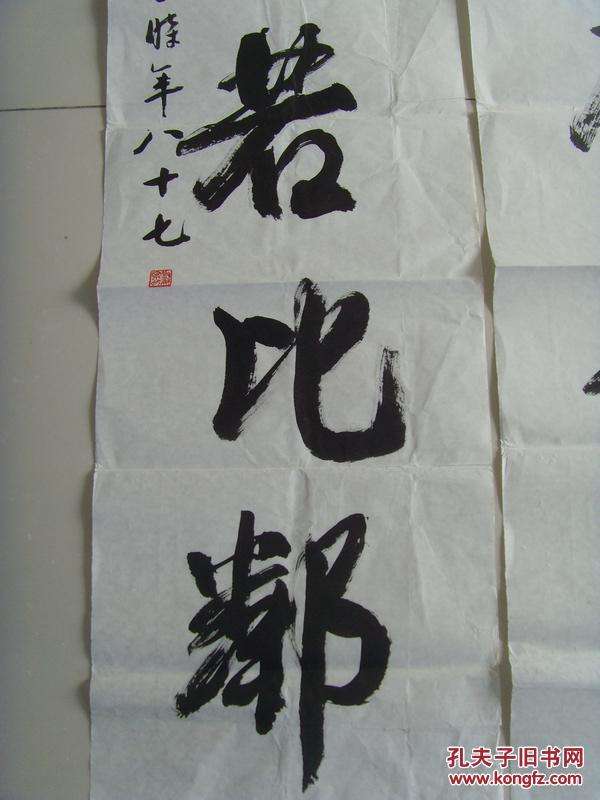 若比鄰
時年八十七
孔夫子旧书网
www.kongfz.com